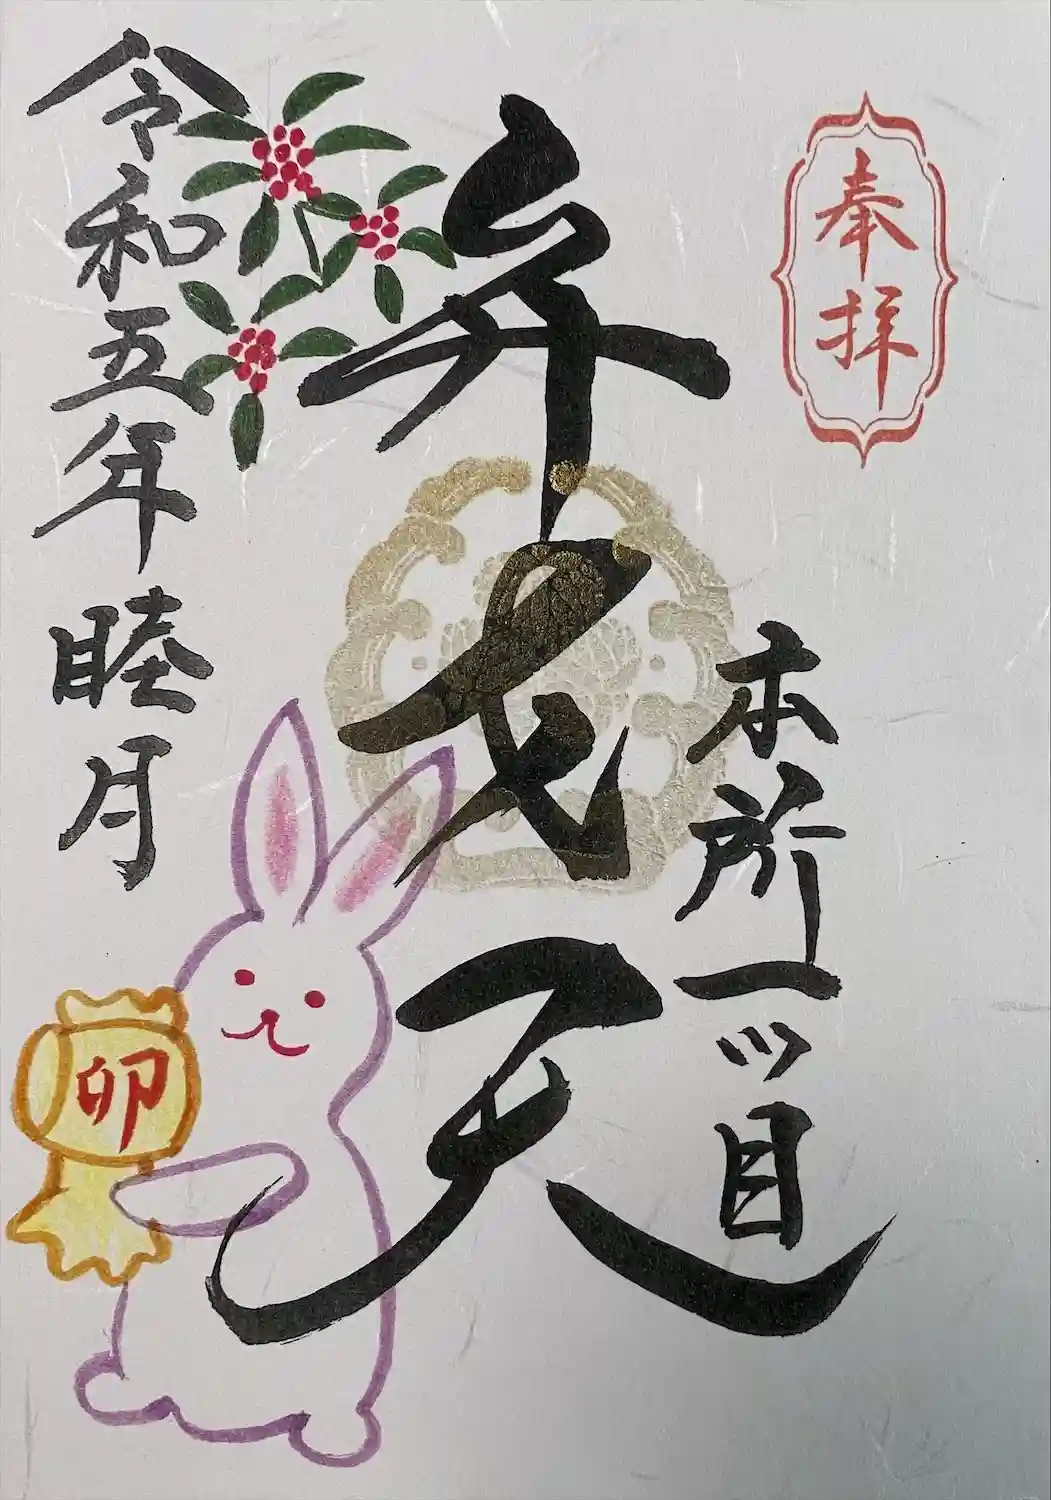 奉拝
本所一ツ目
弁才天
令和五年睦月
卯